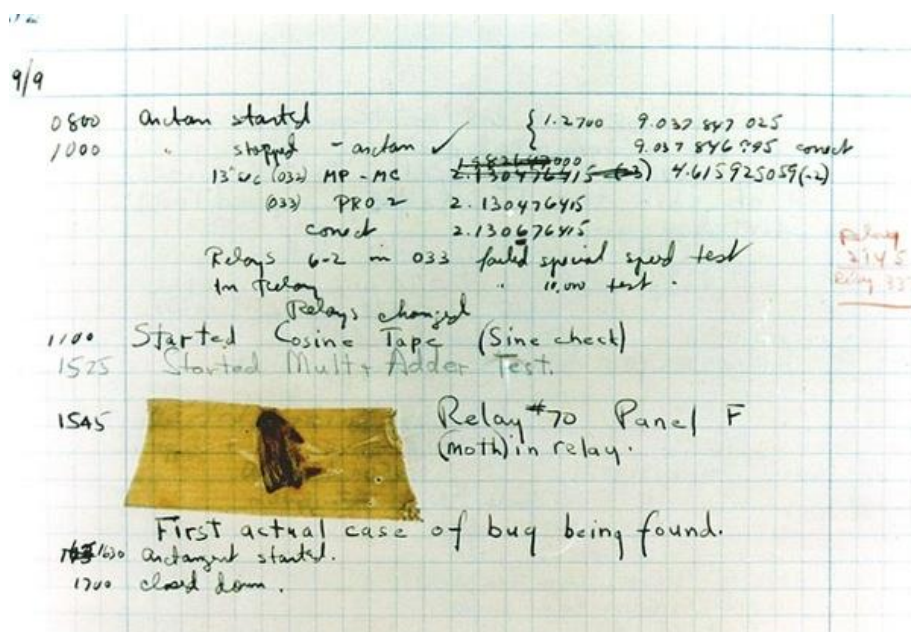 9/9
0800 antan started { 1.2700 9.037 847 025
1000 " stopped - antan ✓ 9.037 846 995 conect
13" uc (032) MP - MC 2.130476415 (-3) 4.615925059(-2)
(033) PRO 2 2.130476415
conect 2.130676415
Relays 6-2 in 033 failed special speed test
In Relay " 10,000 test .
Relays changed
1100 Started Cosine Tape (Sine check)
1525 Started Mult + Adder Test.
Relay
2145
Relay 33
1545 Relay #70 Panel F
(moth) in relay.
First actual case of bug being found.
1630 antangent started.
1700 closed down.